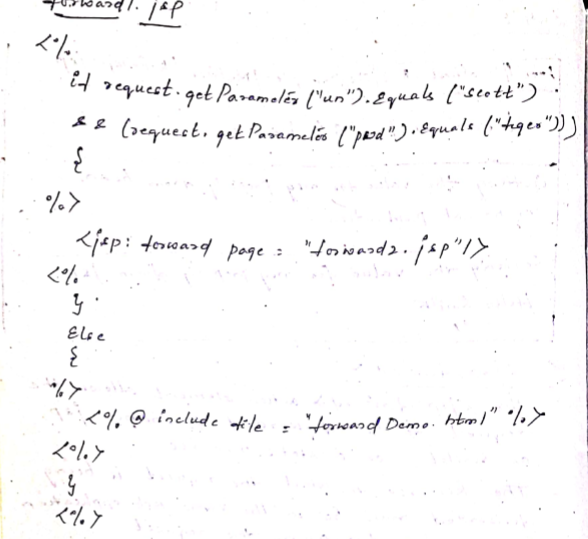 forward1.jsp
<%
if request.getParameter("un").Equals ("scott")
&& (request.getParameter("pwd").Equals ("tiger")))
{
%>
<jsp: forward page = "forward2.jsp"/>
<%
}
Else
{
%>
<%@ include file = "forward Demo.html" %>
<%>
}
<%>